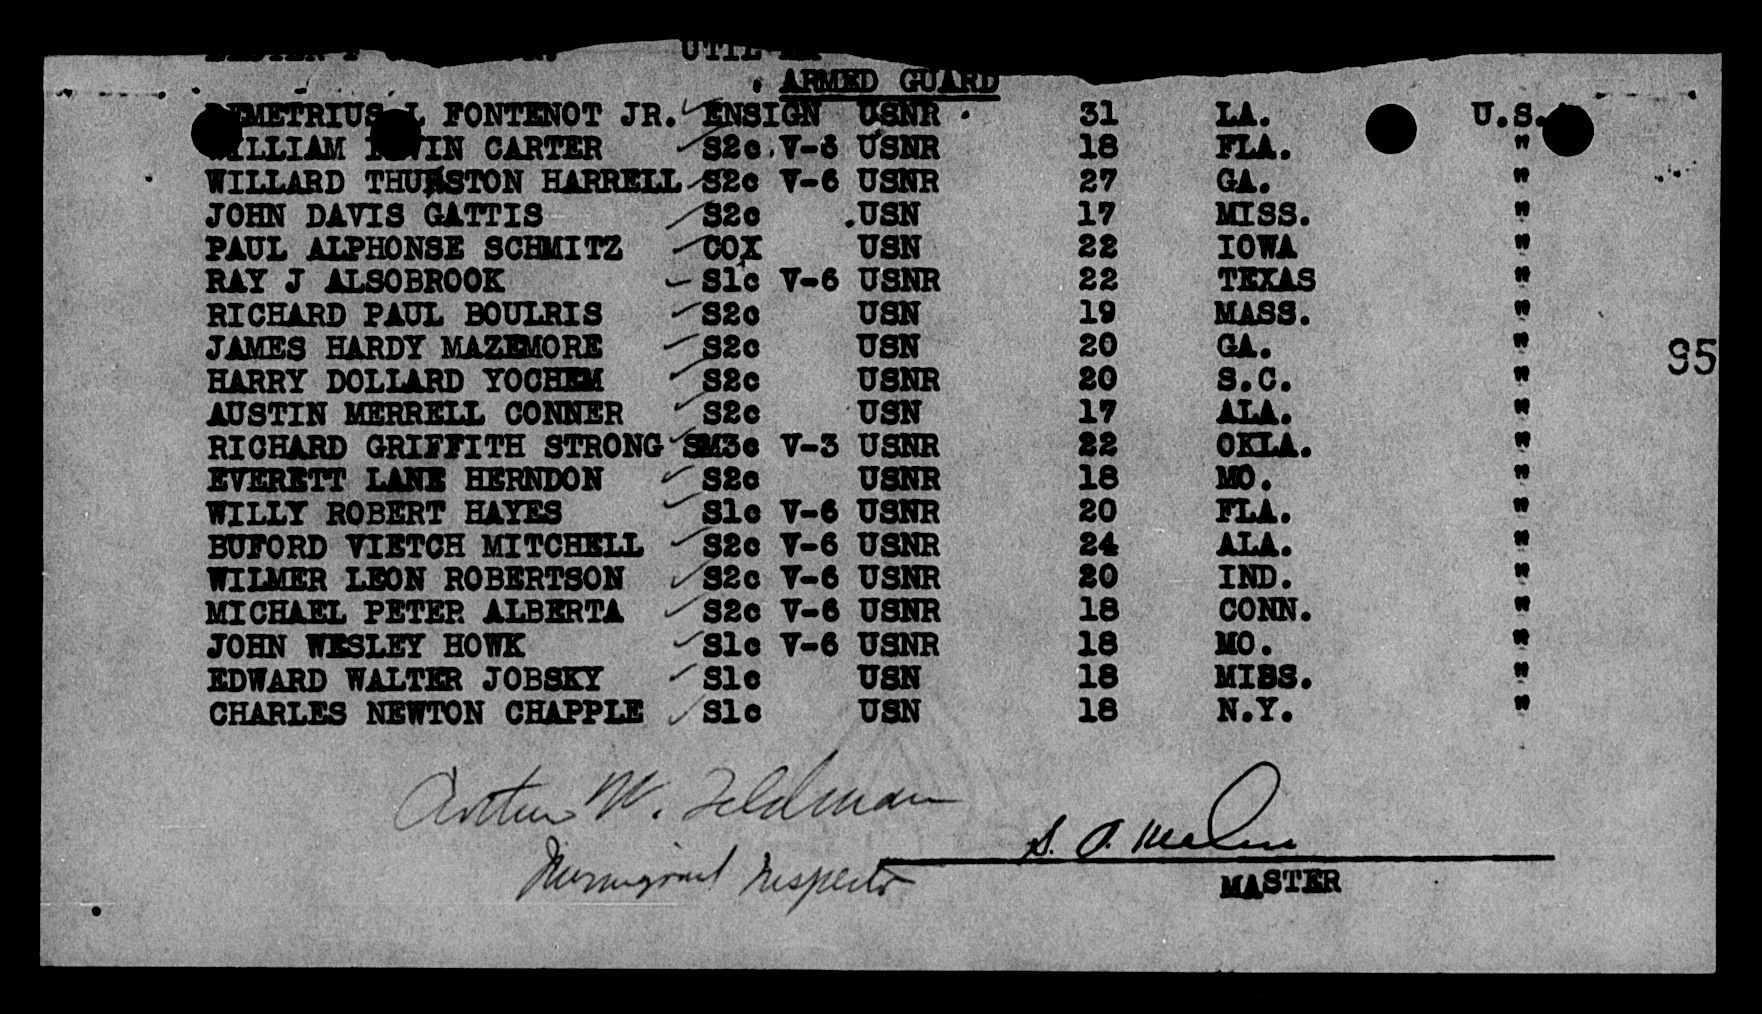 ARMED GUARD
DEMETRIUS L FONTENOT JR. ENSIGN USNR 31 LA. U.S.
WILLIAM CARTER S2c V-6 USNR 18 FLA. "
WILLARD THURSTON HARRELL S2c V-6 USNR 27 GA. "
JOHN DAVIS GATTIS S2c USN 17 MISS. "
PAUL ALPHONSE SCHMITZ COX USN 22 IOWA "
RAY J ALSOBROOK S1c V-6 USNR 22 TEXAS "
RICHARD PAUL BOULRIS S2c USN 19 MASS. "
JAMES HARDY MAZEMORE S2c USN 20 GA. "
95
HARRY DOLLARD YOCHEM S2c USNR 20 S.C. "
AUSTIN MERRELL CONNER S2c USN 17 ALA. "
RICHARD GRIFFITH STRONG SM3c V-3 USNR 22 OKLA. "
EVERETT LANE HERNDON S2c USNR 18 MO. "
WILLY ROBERT HAYES S1c V-6 USNR 20 FLA. "
BUFORD VIETCH MITCHELL S2c V-6 USNR 24 ALA. "
WILMER LEON ROBERTSON S2c V-6 USNR 20 IND. "
MICHAEL PETER ALBERTA S2c V-6 USNR 18 CONN. "
JOHN WESLEY HOWK S1c V-6 USNR 18 MO. "
EDWARD WALTER JOBSKY S1c USN 18 MISS. "
CHARLES NEWTON CHAPPLE S1c USN 18 N.Y. "
Arthur W. Feldman
Immigrant Inspector
MASTER